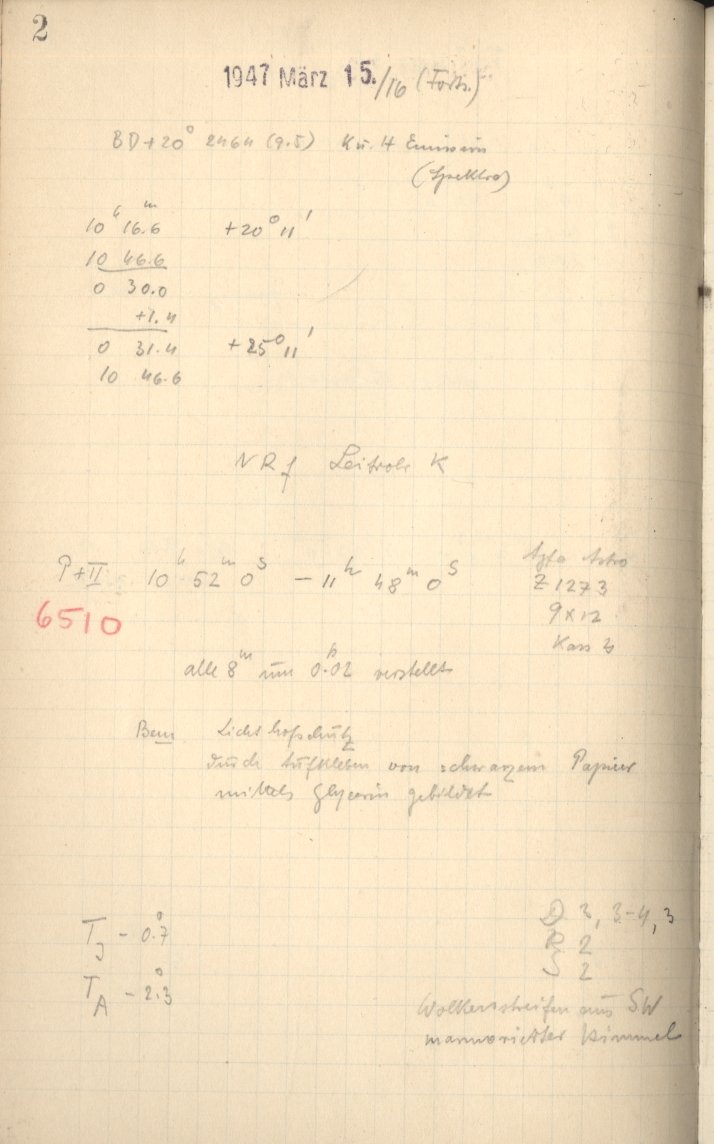 2
1947 März 15./16 (Forts.)
BD+20° 2464 (9.5) K u. H Emission
(Spektro)
10h 16.6m +20° 11'
10 46.6
0 30.0
+1.4
0 31.4 +25° 11'
10 46.6
NRf Leitrohr K
P+II 10h 52m 0s – 11h 48m 0s
Agfa Astro
Z 1273
9x12
Kass
6510
alle 8m um 0.02 verstellt
Bem Lichthofschutz
durch Aufkleben von schwarzem Papier
mittels Glycerin gebildet
TJ – 0.°7
TA – 2.°3
D 3, 3-4, 3
R 2
S 2
Wolkenstreifen aus SW
marmorierter Himmel